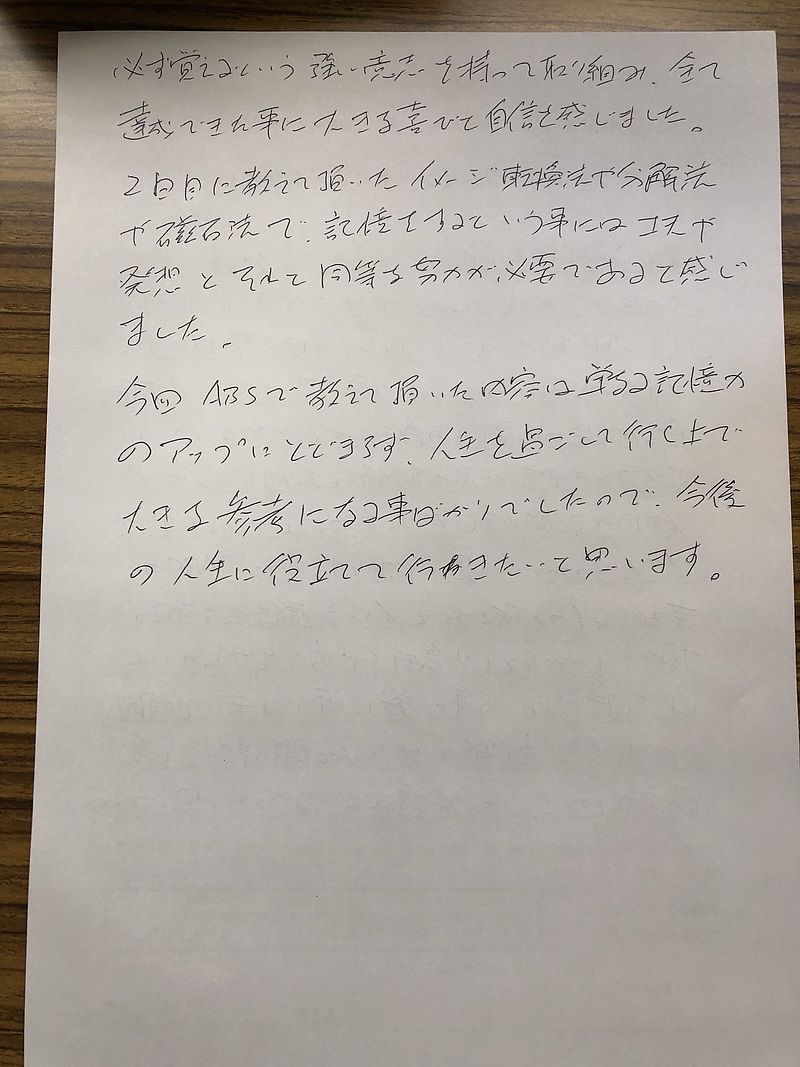 必ず覚えるという強い意志を持って取り組み、全て
達成できた事に大きな喜びと自信を感じました。
2日目に教えて頂いたイメージ転換法や分解法
や磁石法で、記憶をするという事には工夫や
発想とそれと同等な努力が必要であると感じ
ました。
今回ABSで教えて頂いた内容は単なる記憶力
のアップにとどまらず、人生を過ごして行く上で
大きな参考になる事ばかりでしたので、今後
の人生に役立てて行きたいと思います。